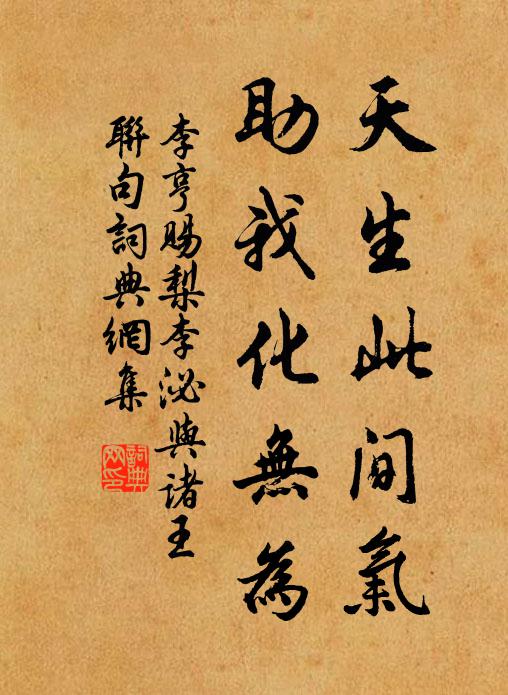 天生此間氣
助我化無為
李亨賜梨李泌與诸王
聯句詞典網集
詞典网印